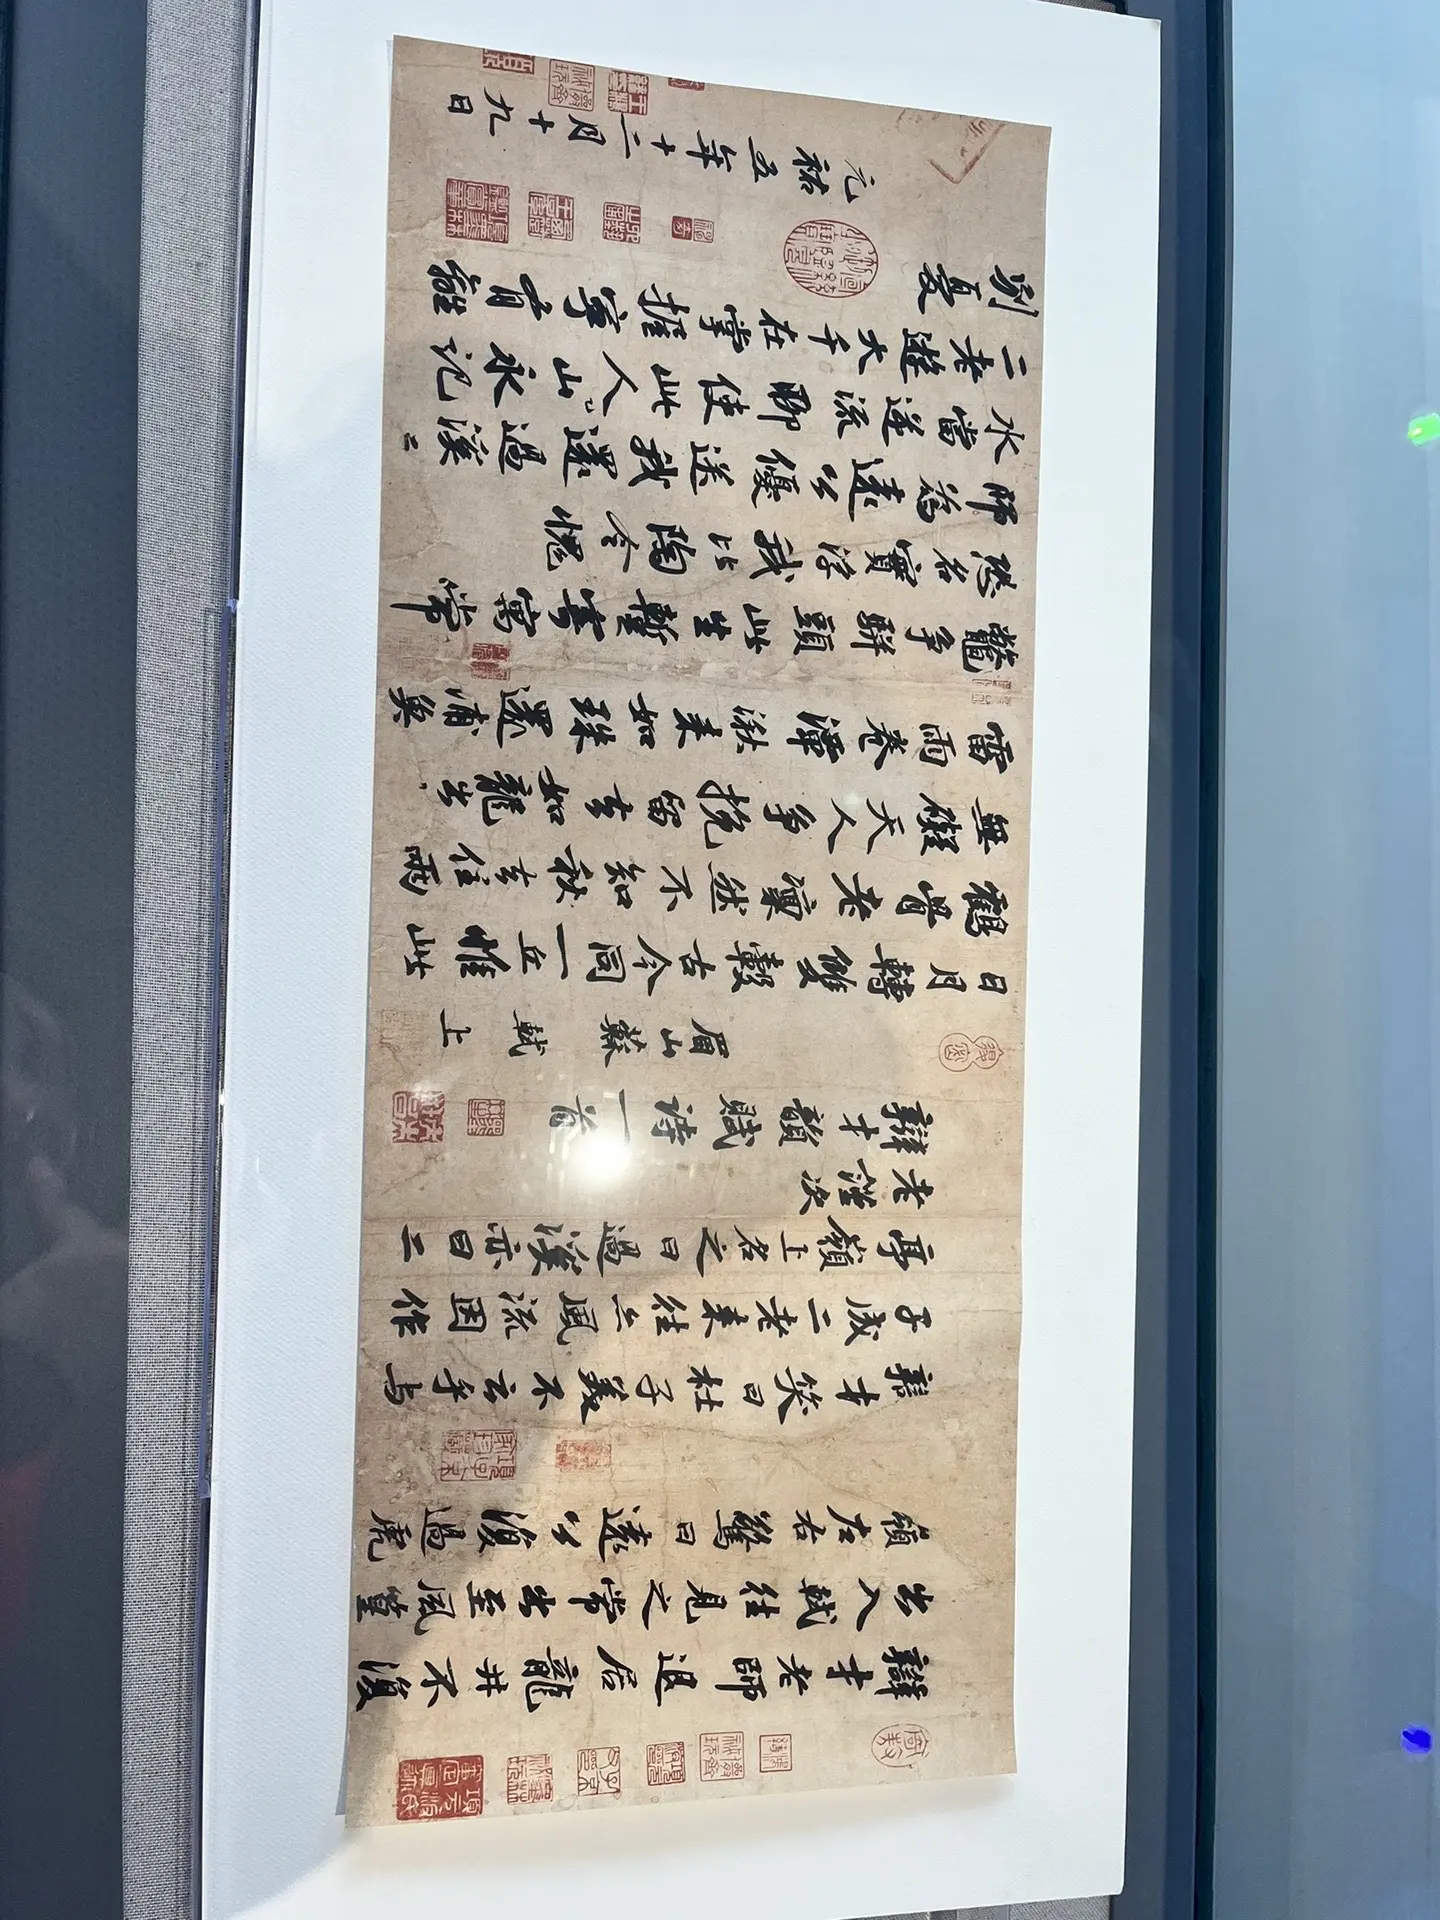 辯才老師退居龍井不復
出入軾往見之常出至風篁
嶺左右驚曰遠公復過虎
辯才笑曰杜子美不云乎与
子成二老来往亦風流因作
亭嶺上名之曰過溪亦曰二
老謹次
辯才韻賦詩一首
眉山蘇軾上
日月轉雙轂古今同一丘惟此
鶴骨老凜然不知秋去住兩
無礙天人爭挽留去如龍出
雷雨卷潭湫来如珠還浦魚
鱉爭駢頭此生暫寄寓常
恐名實浮我比陶令愧
師為遠公優送我還過溪〻
水當逆流聊使此人山永記
二老遊大千在掌握寧有離
別憂
元祐五年十二月十九日